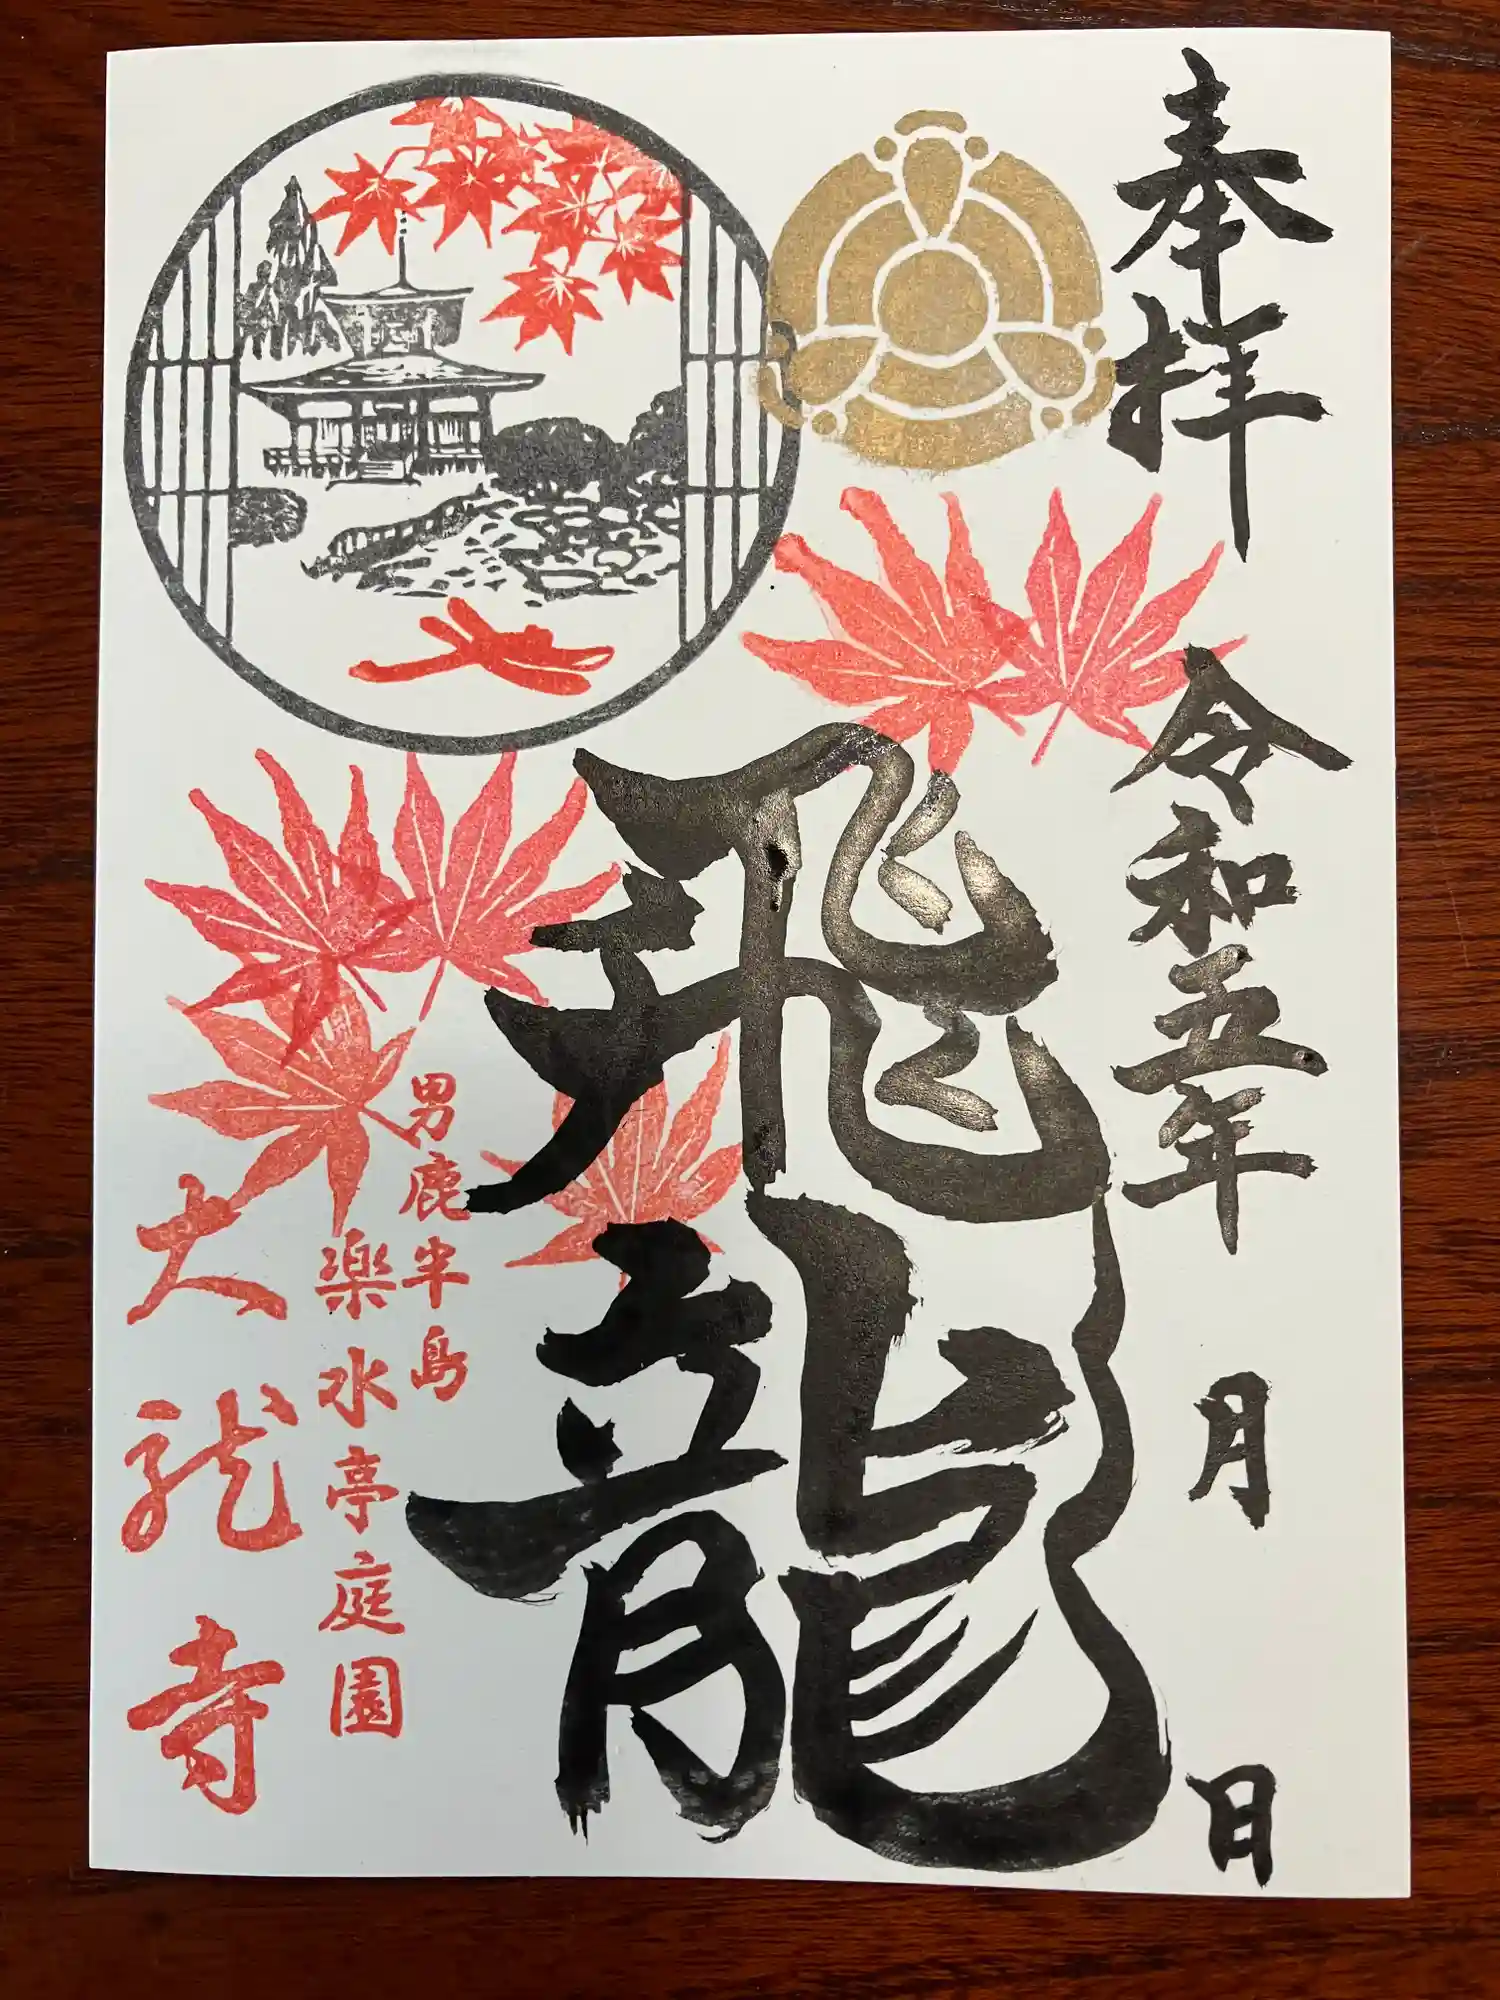 奉拝
令和五年 月 日
飛龍
男鹿半島
楽水亭庭園
大龍寺